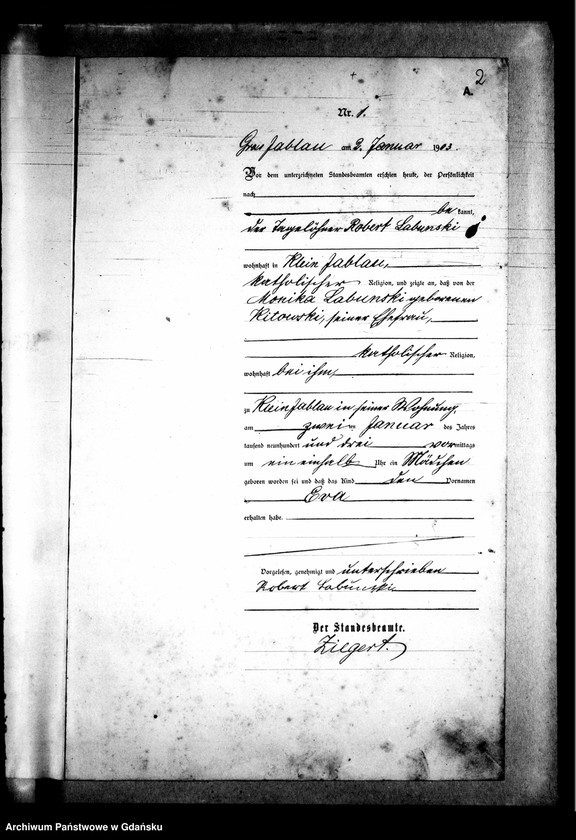 2
A.
Nr. 1.
Gross Jablau am 3. Januar 1903.
Vor dem unterzeichneten Standesbeamten erschien heute, der Persönlichkeit
nach
be kannt,
der Tagelöhner Robert Labunski
wohnhaft in Klein Jablau,
katholischer Religion, und zeigte an, daß von der
Monika Labunski geborenen
Kitowski, seiner Ehefrau,
katholischer Religion,
wohnhaft bei ihm,
zu Klein Jablau in seiner Wohnung,
am zwei ten Januar des Jahres
tausend neunhundert und drei vor mittags
um ein einhalb Uhr ein Mädchen
geboren worden sei und daß das Kind den Vornamen
Eva
erhalten habe.
Vorgelesen, genehmigt und unterschrieben
Robert Labunski
Der Standesbeamte.
Ziegert.
Archiwum Państwowe w Gdańsku